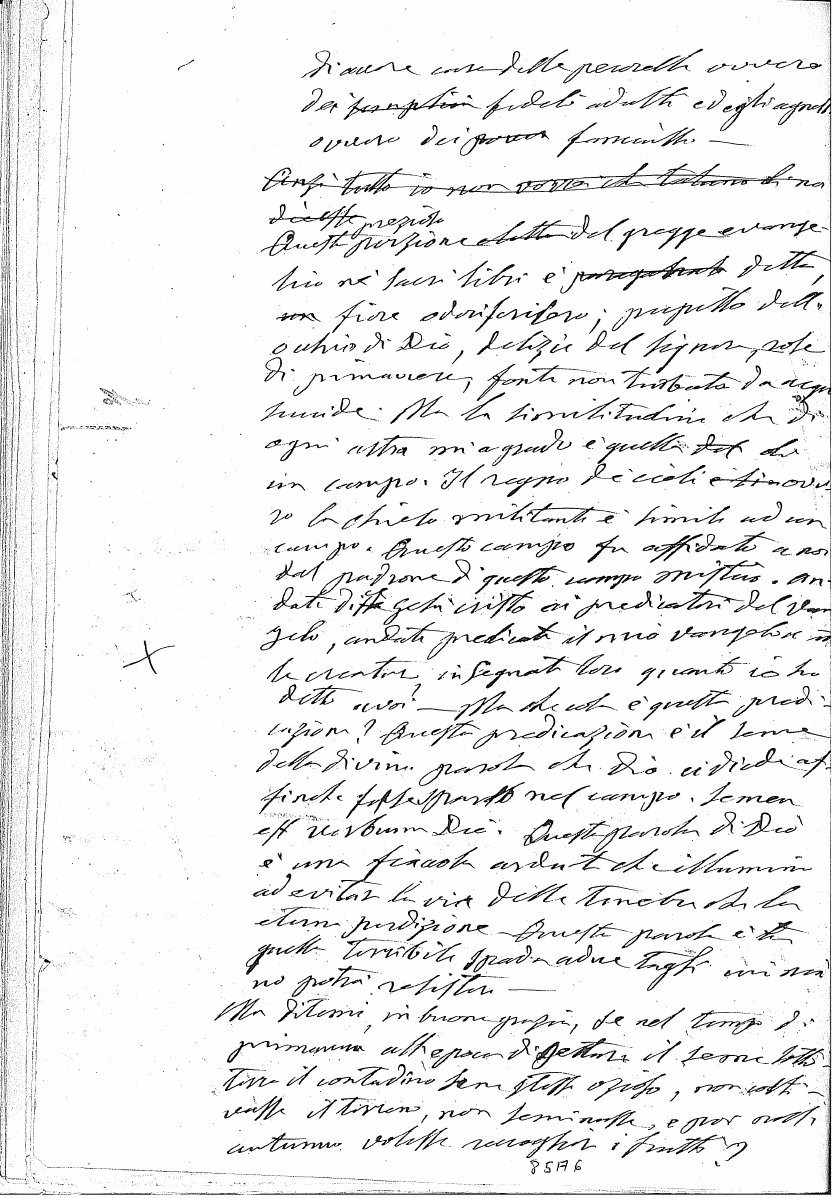 di avere cura delle pecorelle ovvero
dei semplici fedeli adulti e degli agnelli
ovvero dei fanciulli —
Anzi tutto io non vorrei che taluno di noi
dicesse preziosa
Questa porzione eletta del gregge evange-
lico ne' sacri libri è detta,
un fiore odorifero; pupilla dell'
occhio di Dio, delizie del Signore, rose
di primavera, fonte non turbata da acque
sucide. Ma la similitudine che di
ogni altra mi aggrada è quella del di
un campo. Il regno de' cieli ovve-
ro la chiesa militante è simile ad un
campo. Questo campo fu affidato a noi
dal padrone di questo campo mistico. An-
date disse Gesù Cristo ai predicatori del Van-
gelo, andate predicate il mio vangelo a
le creature, insegnate loro quanto io ho
detto a voi? — Ma che cosa è questa predi-
cazione? Questa predicazione è il seme
della divina parola che Dio ci diede af-
finché fosse sparso nel campo. Semen
est verbum Dei. Questa parola di Dio
è una fiaccola ardente che illumina
ad evitar la via delle tenebre che la
eterna perdizione — Questa parola è
quella terribile spada a due tagli cui niu
no potrà resistere —
Ma ditemi, in buona grazia, se nel tempo di
primavera all'epoca di gettare il seme sotto
terra il contadino se ne stesse ozioso, non colti-
vasse il terreno, non seminasse, e poi nell'
autunno volesse raccoglier i frutti?
85176